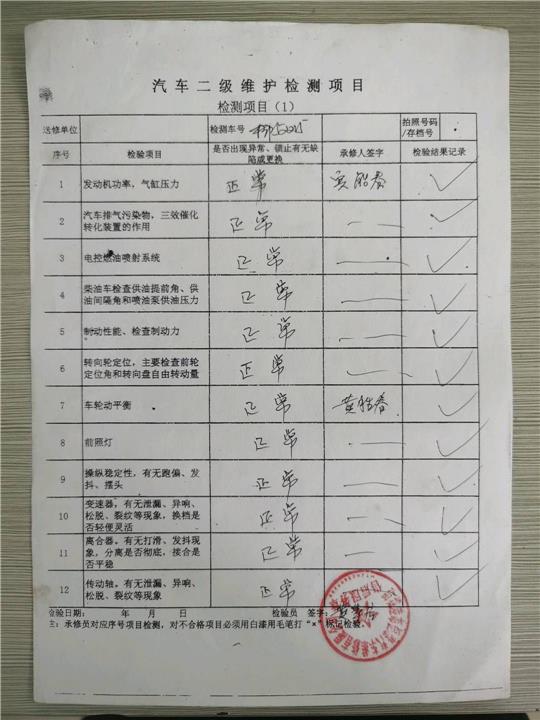 汽车二级维护检测项目
检测项目（1）
送修单位 检测车号 拍照号码/存档号
序号 检验项目 是否出现异常、锁止有无缺陷或更换 承修人签字 检验结果记录
1 发动机功率，气缸压力 正常 ✓
2 汽车排气污染物，三效催化转化装置的作用 正常 ✓
3 电控燃油喷射系统 正常 ✓
4 柴油车检查供油提前角、供油间隔角和喷油泵供油压力 正常 ✓
5 制动性能、检查制动力 正常 ✓
6 转向轮定位，主要检查前轮定位角和转向盘自由转动量 正常 ✓
7 车轮动平衡 正常 ✓
8 前照灯 正常 ✓
9 操纵稳定性，有无跑偏、发抖、摆头 正常 ✓
10 变速器，有无泄漏、异响、松脱、裂纹等现象，换档是否轻便灵活 正常 ✓
11 离合器，有无打滑、发抖现象，分离是否彻底，接合是否平稳 正常 ✓
12 传动轴，有无泄漏、异响、松脱、裂纹等现象 正常 ✓
检验日期： 年 月 日 检验员 签字：
注：承修员对应序号项目检测，对不合格项目必须用白漆用毛笔打“×”标记检验.